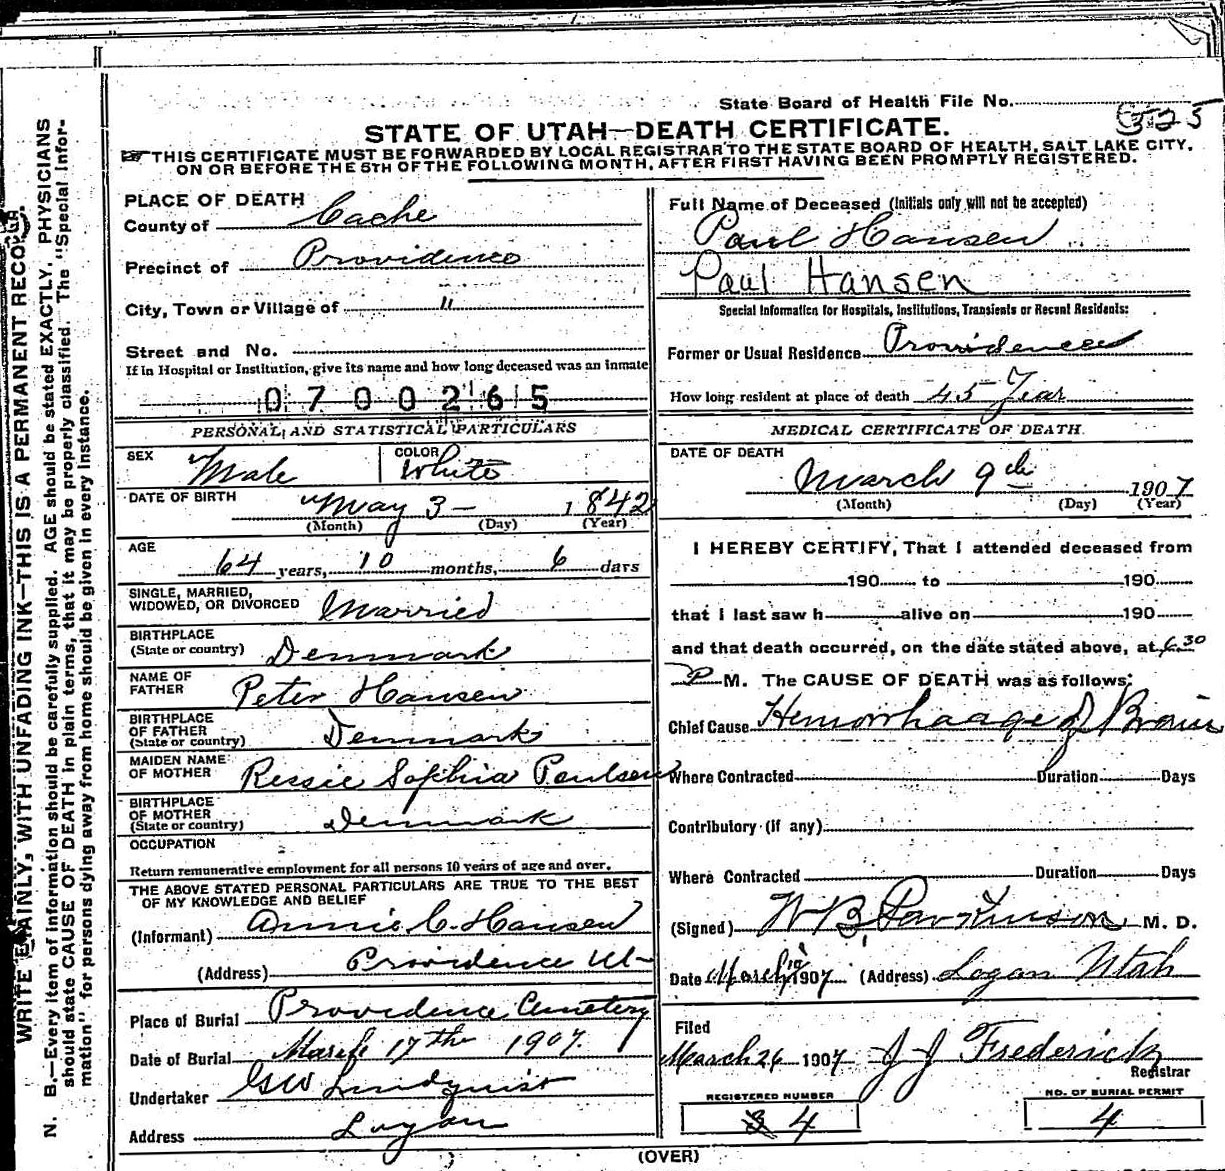 State Board of Health File No. 325
STATE OF UTAH—DEATH CERTIFICATE.
THIS CERTIFICATE MUST BE FORWARDED BY LOCAL REGISTRAR TO THE STATE BOARD OF HEALTH, SALT LAKE CITY,
ON OR BEFORE THE 5TH OF THE FOLLOWING MONTH, AFTER FIRST HAVING BEEN PROMPTLY REGISTERED.
WRITE PLAINLY, WITH UNFADING INK—THIS IS A PERMANENT RECORD.
N. B.—Every item of information should be carefully supplied. AGE should be stated EXACTLY. PHYSICIANS
should state CAUSE OF DEATH in plain terms, that it may be properly classified. The "Special Infor-
mation" for persons dying away from home should be given in every instance.
PLACE OF DEATH
County of Cache
Precinct of Providence
City, Town or Village of "
Street and No.
If in Hospital or Institution, give its name and how long deceased was an inmate
0700265
PERSONAL AND STATISTICAL PARTICULARS
SEX Male COLOR White
DATE OF BIRTH May 3 - 1842
(Month) (Day) (Year)
AGE
64 years, 10 months, 6 days
SINGLE, MARRIED,
WIDOWED, OR DIVORCED Married
BIRTHPLACE
(State or country) Denmark
NAME OF
FATHER Peter Hansen
BIRTHPLACE
OF FATHER
(State or country) Denmark
MAIDEN NAME
OF MOTHER Ressie Sophia Paulsen
BIRTHPLACE
OF MOTHER
(State or country) Denmark
OCCUPATION
Return remunerative employment for all persons 10 years of age and over.
THE ABOVE STATED PERSONAL PARTICULARS ARE TRUE TO THE BEST
OF MY KNOWLEDGE AND BELIEF
(Informant) Annie C. Hansen
(Address) Providence Ut-
Place of Burial Providence Cemetery
Date of Burial March 17th 1907.
Undertaker GW Lindquist
Address Logan
Full Name of Deceased (Initials only will not be accepted)
Paul Hansen
Paul Hansen
Special Information for Hospitals, Institutions, Transients or Recent Residents:
Former or Usual Residence Providence
How long resident at place of death 45 Year
MEDICAL CERTIFICATE OF DEATH
DATE OF DEATH
March 9th 1907
(Month) (Day) (Year)
I HEREBY CERTIFY, That I attended deceased from
190 to 190
that I last saw h alive on 190
and that death occurred, on the date stated above, at 6.30
P M. The CAUSE OF DEATH was as follows:
Chief Cause Hemorrhaage of Brain
Where Contracted Duration Days
Contributory (if any)
Where Contracted Duration Days
(Signed) W B Parkinson M. D.
Date March 12 1907 (Address) Logan Utah
Filed
March 26 1907 J J Frederick
Registrar
REGISTERED NUMBER
4
NO. OF BURIAL PERMIT
4
(OVER)